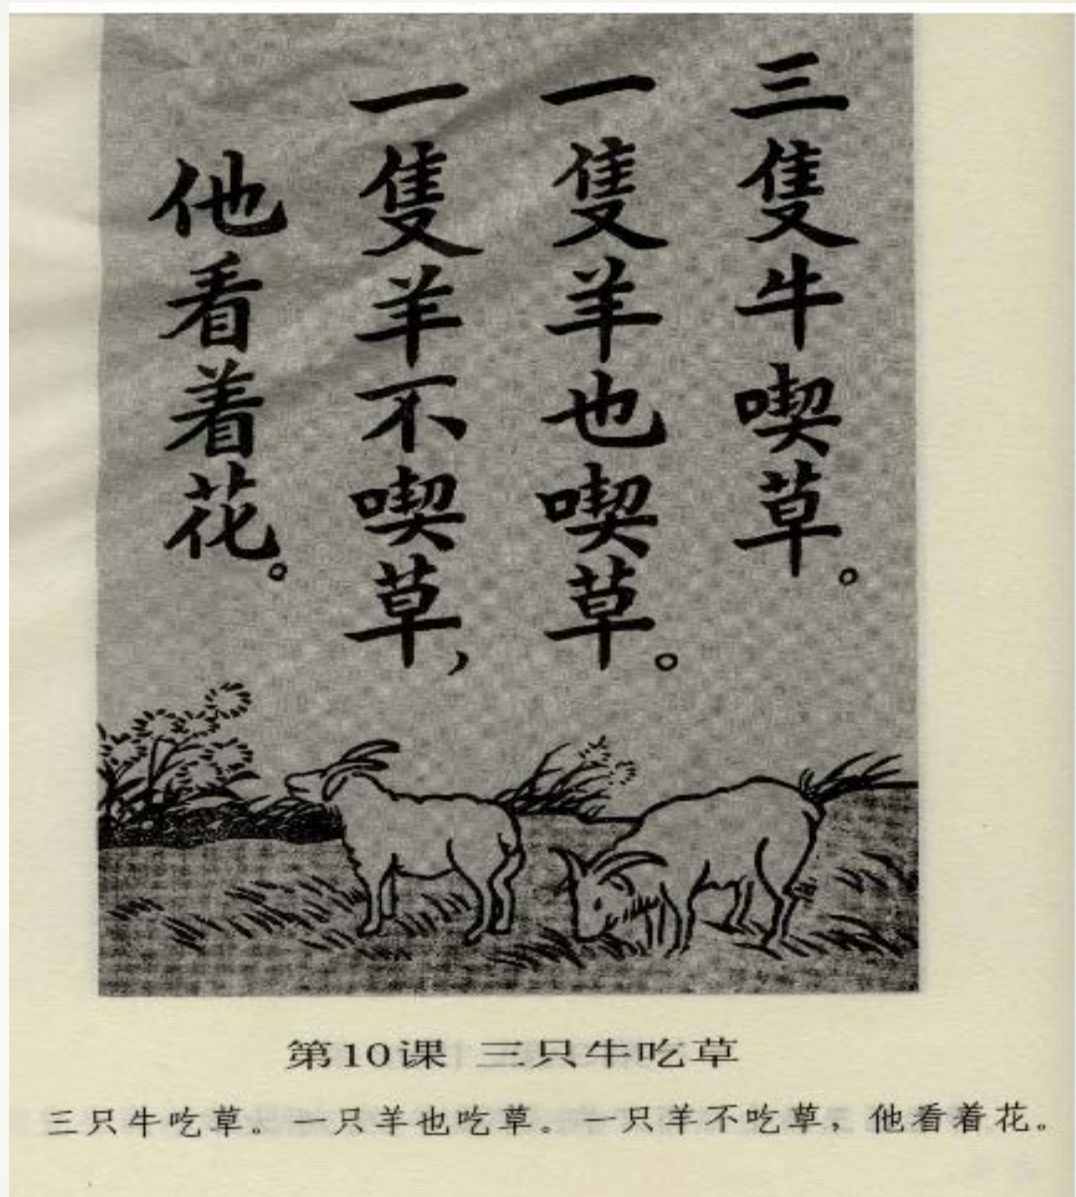 三隻牛喫草。
一隻羊也喫草。
一隻羊不喫草，
他看着花。
第10课 三只牛吃草
三只牛吃草。一只羊也吃草。一只羊不吃草，他看着花。